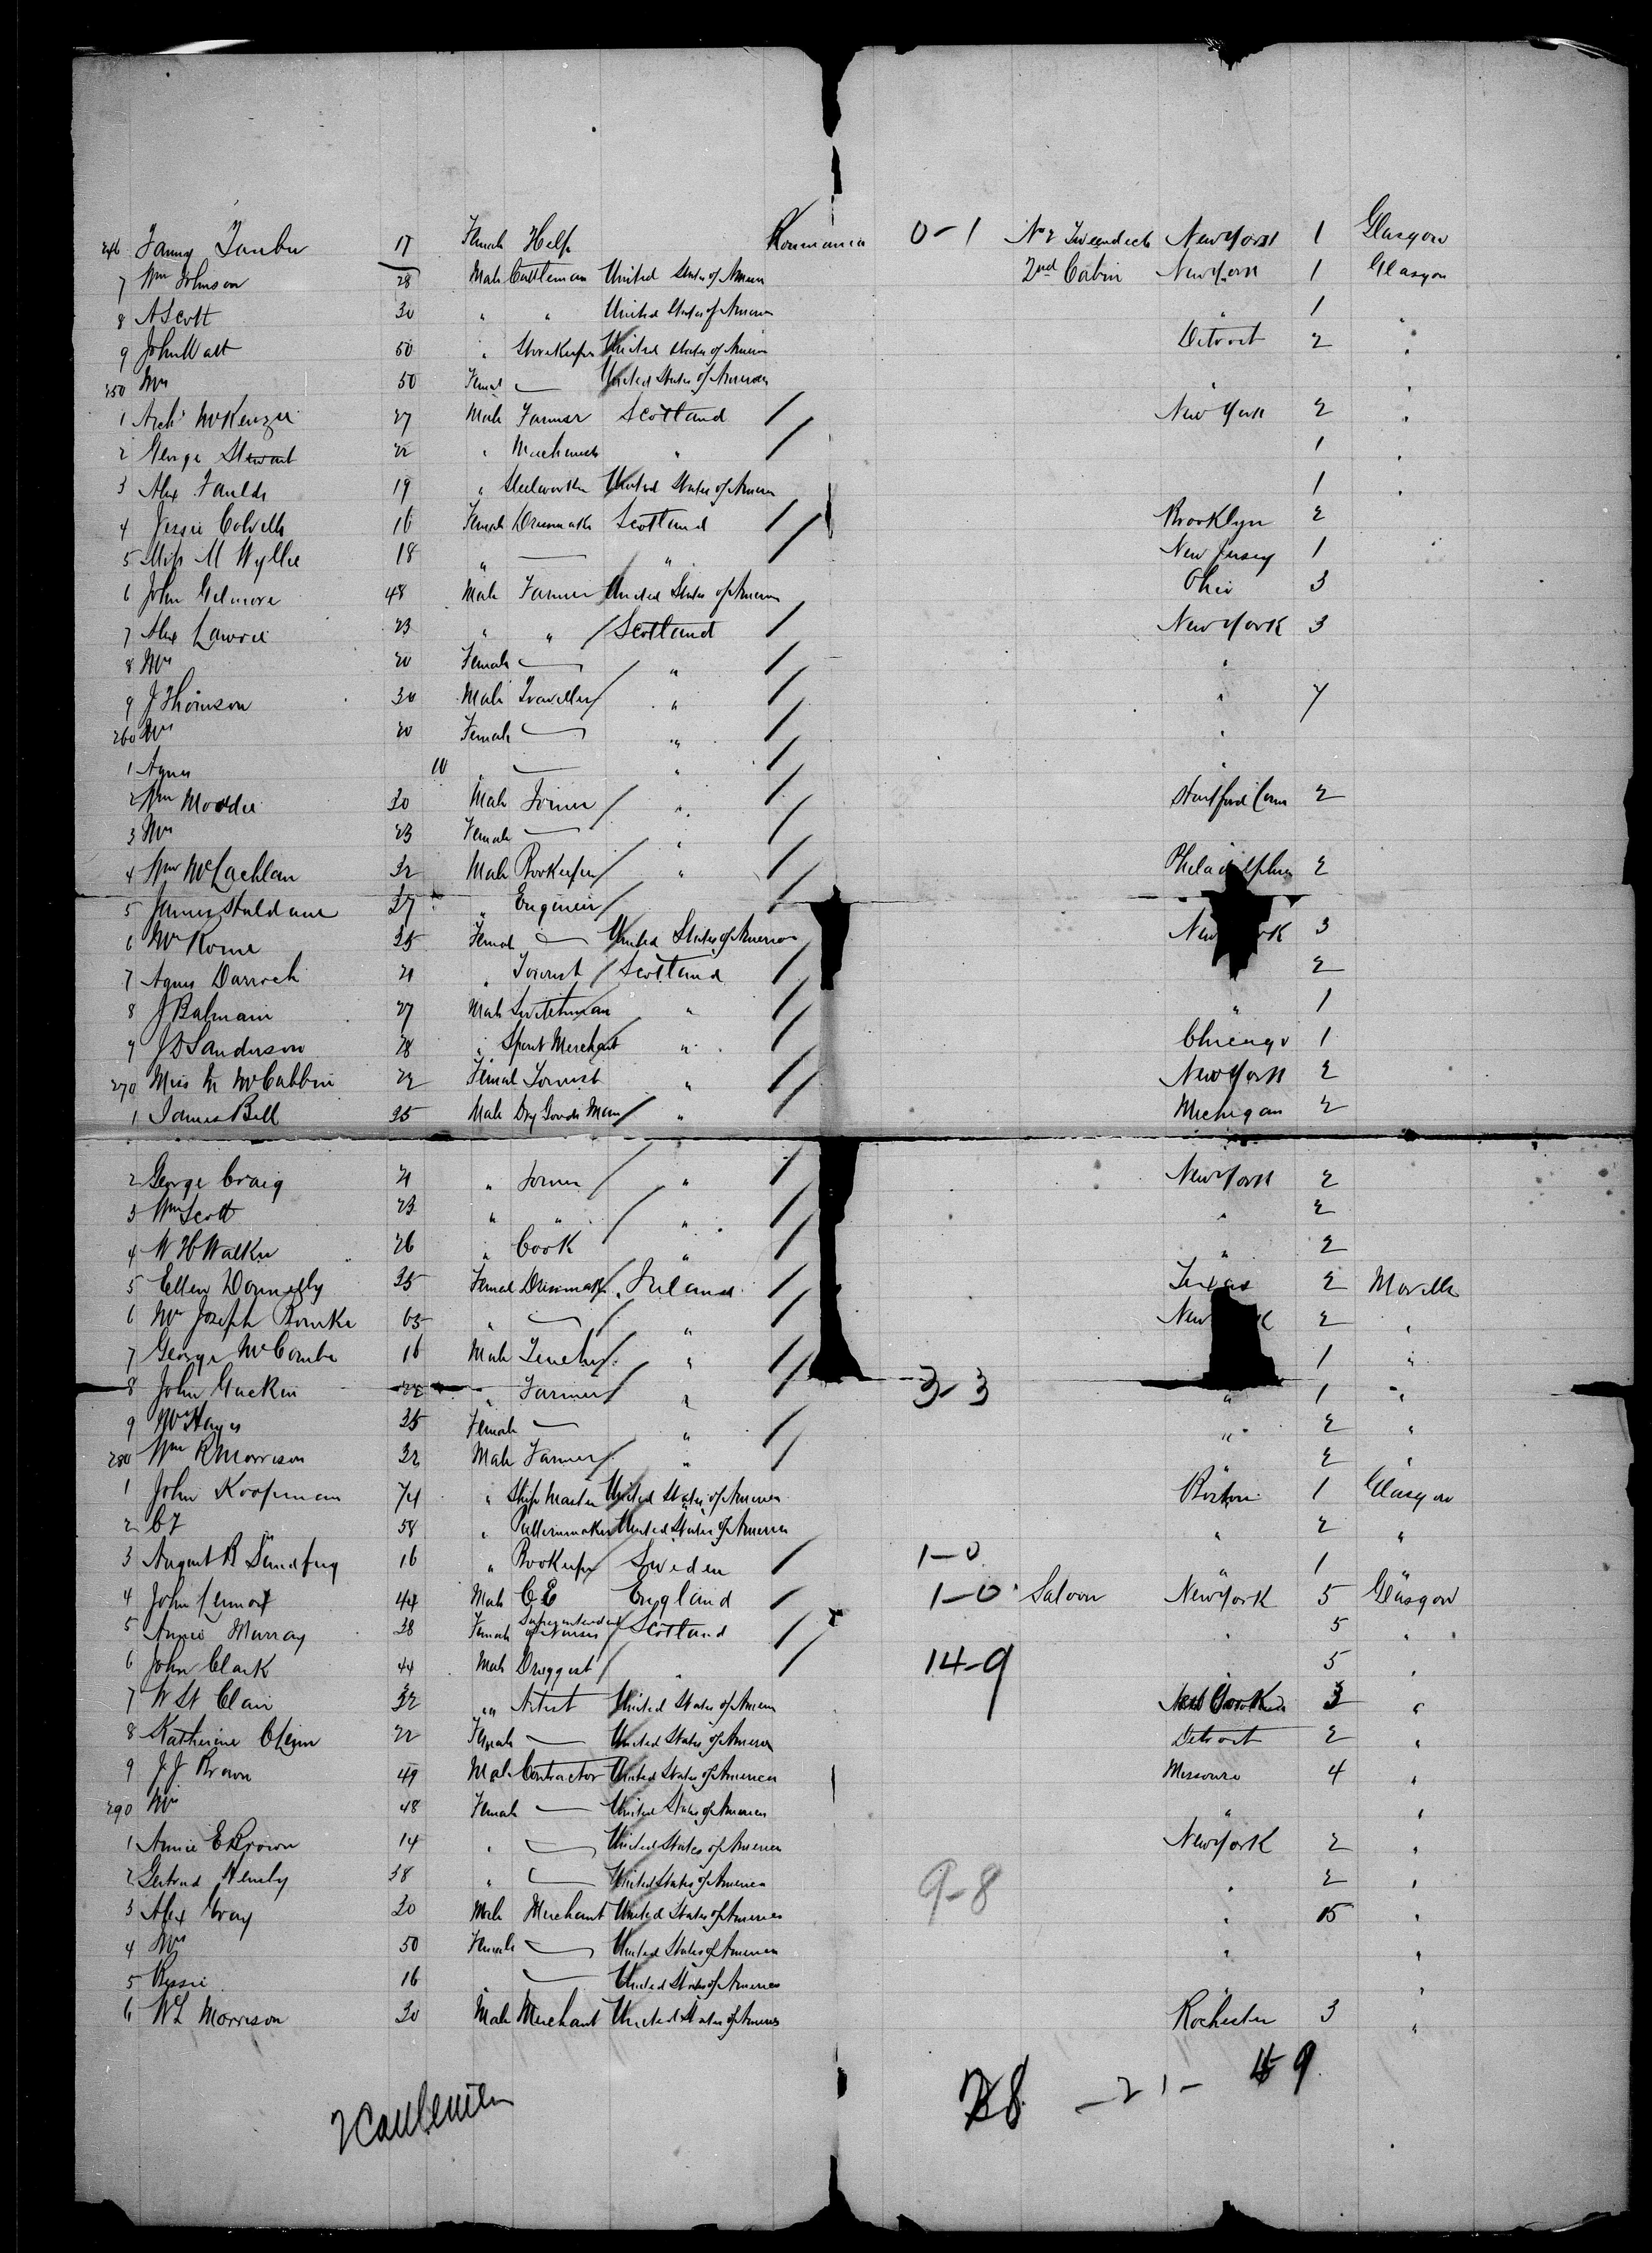 246 Fanny Tauber 17 Female Help Roumania 0-1 No 2 Tweendeck New York 1 Glasgow
7 Wm Johnson 28 Male Cattleman United States of America 2nd Cabin New York 1 Glasgow
8 A Scott 30 " " United States of America " 1 "
9 John Watt 50 " Storekeeper United States of America Detroit 2 "
250 Mrs 50 Female — United States of America " "
1 Archd McKenzie 27 Male Farmer Scotland / New York 2 "
2 George Stewart 22 " Mechanic " / 1 "
3 Alex Faulds 19 " Steelworker United States of America 1 "
4 Jessie Colville 16 Female Dressmaker Scotland / Brooklyn 2
5 Miss M Wyllie 18 " — " / New Jersey 1
6 John Gilmore 48 Male Farmer United States of America Ohio 3
7 Alex Lawrie 23 " " / Scotland / New York 3
8 Mrs 20 Female — / " / "
9 J Thomson 30 Male Traveller / " / " 7
260 Mrs 20 Female — " / "
1 Agnes 10 " — " / "
2 Wm Moodie 30 Male Joiner / " / Hartford Conn 2
3 Mrs 23 Female — " /
4 Wm McLachlan 32 Male Bookeeper / " / Philadelphia 2
5 James Haldane 37 " Engineer / /
6 Mrs Rome 35 Female — United States of America New rk 3
7 Agnes Darroch 21 " Tourist / Scotland / 2
8 J Balmain 27 Male " / " 1
9 J D Sanderson 28 " Spirit Merchant " / Chicago 1
270 Miss M McCubbin 22 Female Tourist " / New York 2
1 James Bell 35 Male Dry Goods Man / " / Michigan 2
2 George Craig 21 " Joiner / " / New York 2
3 Wm Scott 23 " " / " / " 2
4 W H Walker 26 " Cook " / " 2
5 Ellen Donnelly 35 Female Dressmaker Ireland / Texas 2 Moville
6 Mrs Joseph Rourke 65 " — / " / New k 2 "
7 George McCombe 16 Male Teacher / " / 1 "
8 John Guckin 22 " Farmer / " / 3-3 " 1 "
9 Mrs Hayes 35 Female — " / " 2 "
280 Wm R Morrison 32 Male Farmer / " / " 2 "
1 John Koopman 74 " Ship Master United States of America Boston 1 Glasgow
2 C F 58 " Patternmaker United States of America " 2 "
3 August R 16 " Bookeeper Sweden / 1-0 " 1 "
4 John Lennox 44 Male C E England / 1-0 Saloon New York 5 Glasgow
5 Annie Murray 38 Female Superintendent of Nurses / Scotland / " 5 "
6 John Clark 44 Male Druggist / " / 14-9 5 "
7 W St Clair 32 " Artist United States of America 3 "
8 Katherine 22 Female — United States of America Detroit 2 "
9 J J Brown 49 Male Contractor United States of America Missouri 4 "
290 Mrs 48 Female — United States of America " "
1 Annie E Brown 14 " — United States of America New York 2 "
2 Gertrud 38 " — United States of America 9-8 " 2 "
3 Alex Gray 30 Male Merchant United States of America " 15 "
4 Mrs 50 Female — United States of America " "
5 Bessie 16 " — United States of America " "
6 W L Morrison 30 Male Merchant United States of America Rochester 3 "
38 -21- 9